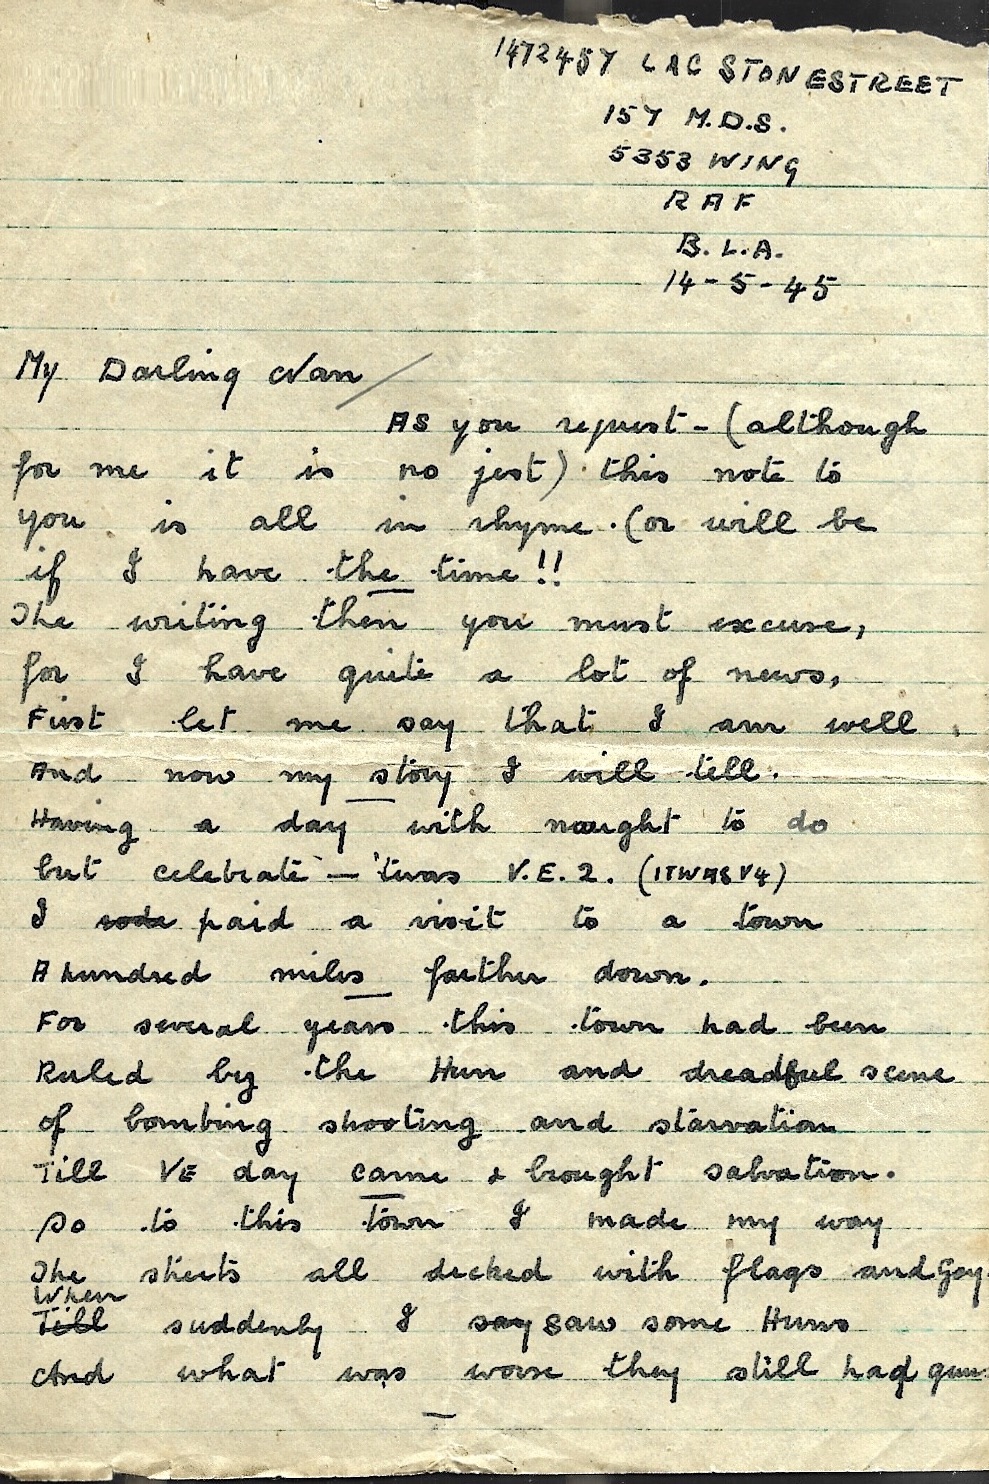 1472457 LAC STONESTREET
157 M.D.S.
5353 WING
RAF
B.L.A.
14-5-45
My Darling Nan
As you request - (although
for me it is no jest) this note to
you is all in rhyme. (or will be
if I have the time!!
The writing then you must excuse,
for I have quite a lot of news,
First let me say that I am well,
And now my story I will tell.
Having a day with nought to do
but celebrate - 'twas V.E.2. (ITWAS V4)
I rode paid a visit to a town
A hundred miles farther down.
For several years this town had been
Ruled by the Hun and dreadful scene
of bombing shooting and starvation
Till VE day came & brought salvation.
So to this town I made my way
The streets all decked with flags and gay.
When
Till suddenly I say saw some Huns
And what was worse they still had guns